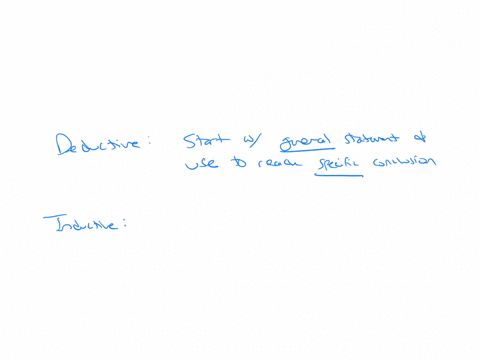 Deductive: Start w/ general statement &
use to reach specific conclusion
Inductive: